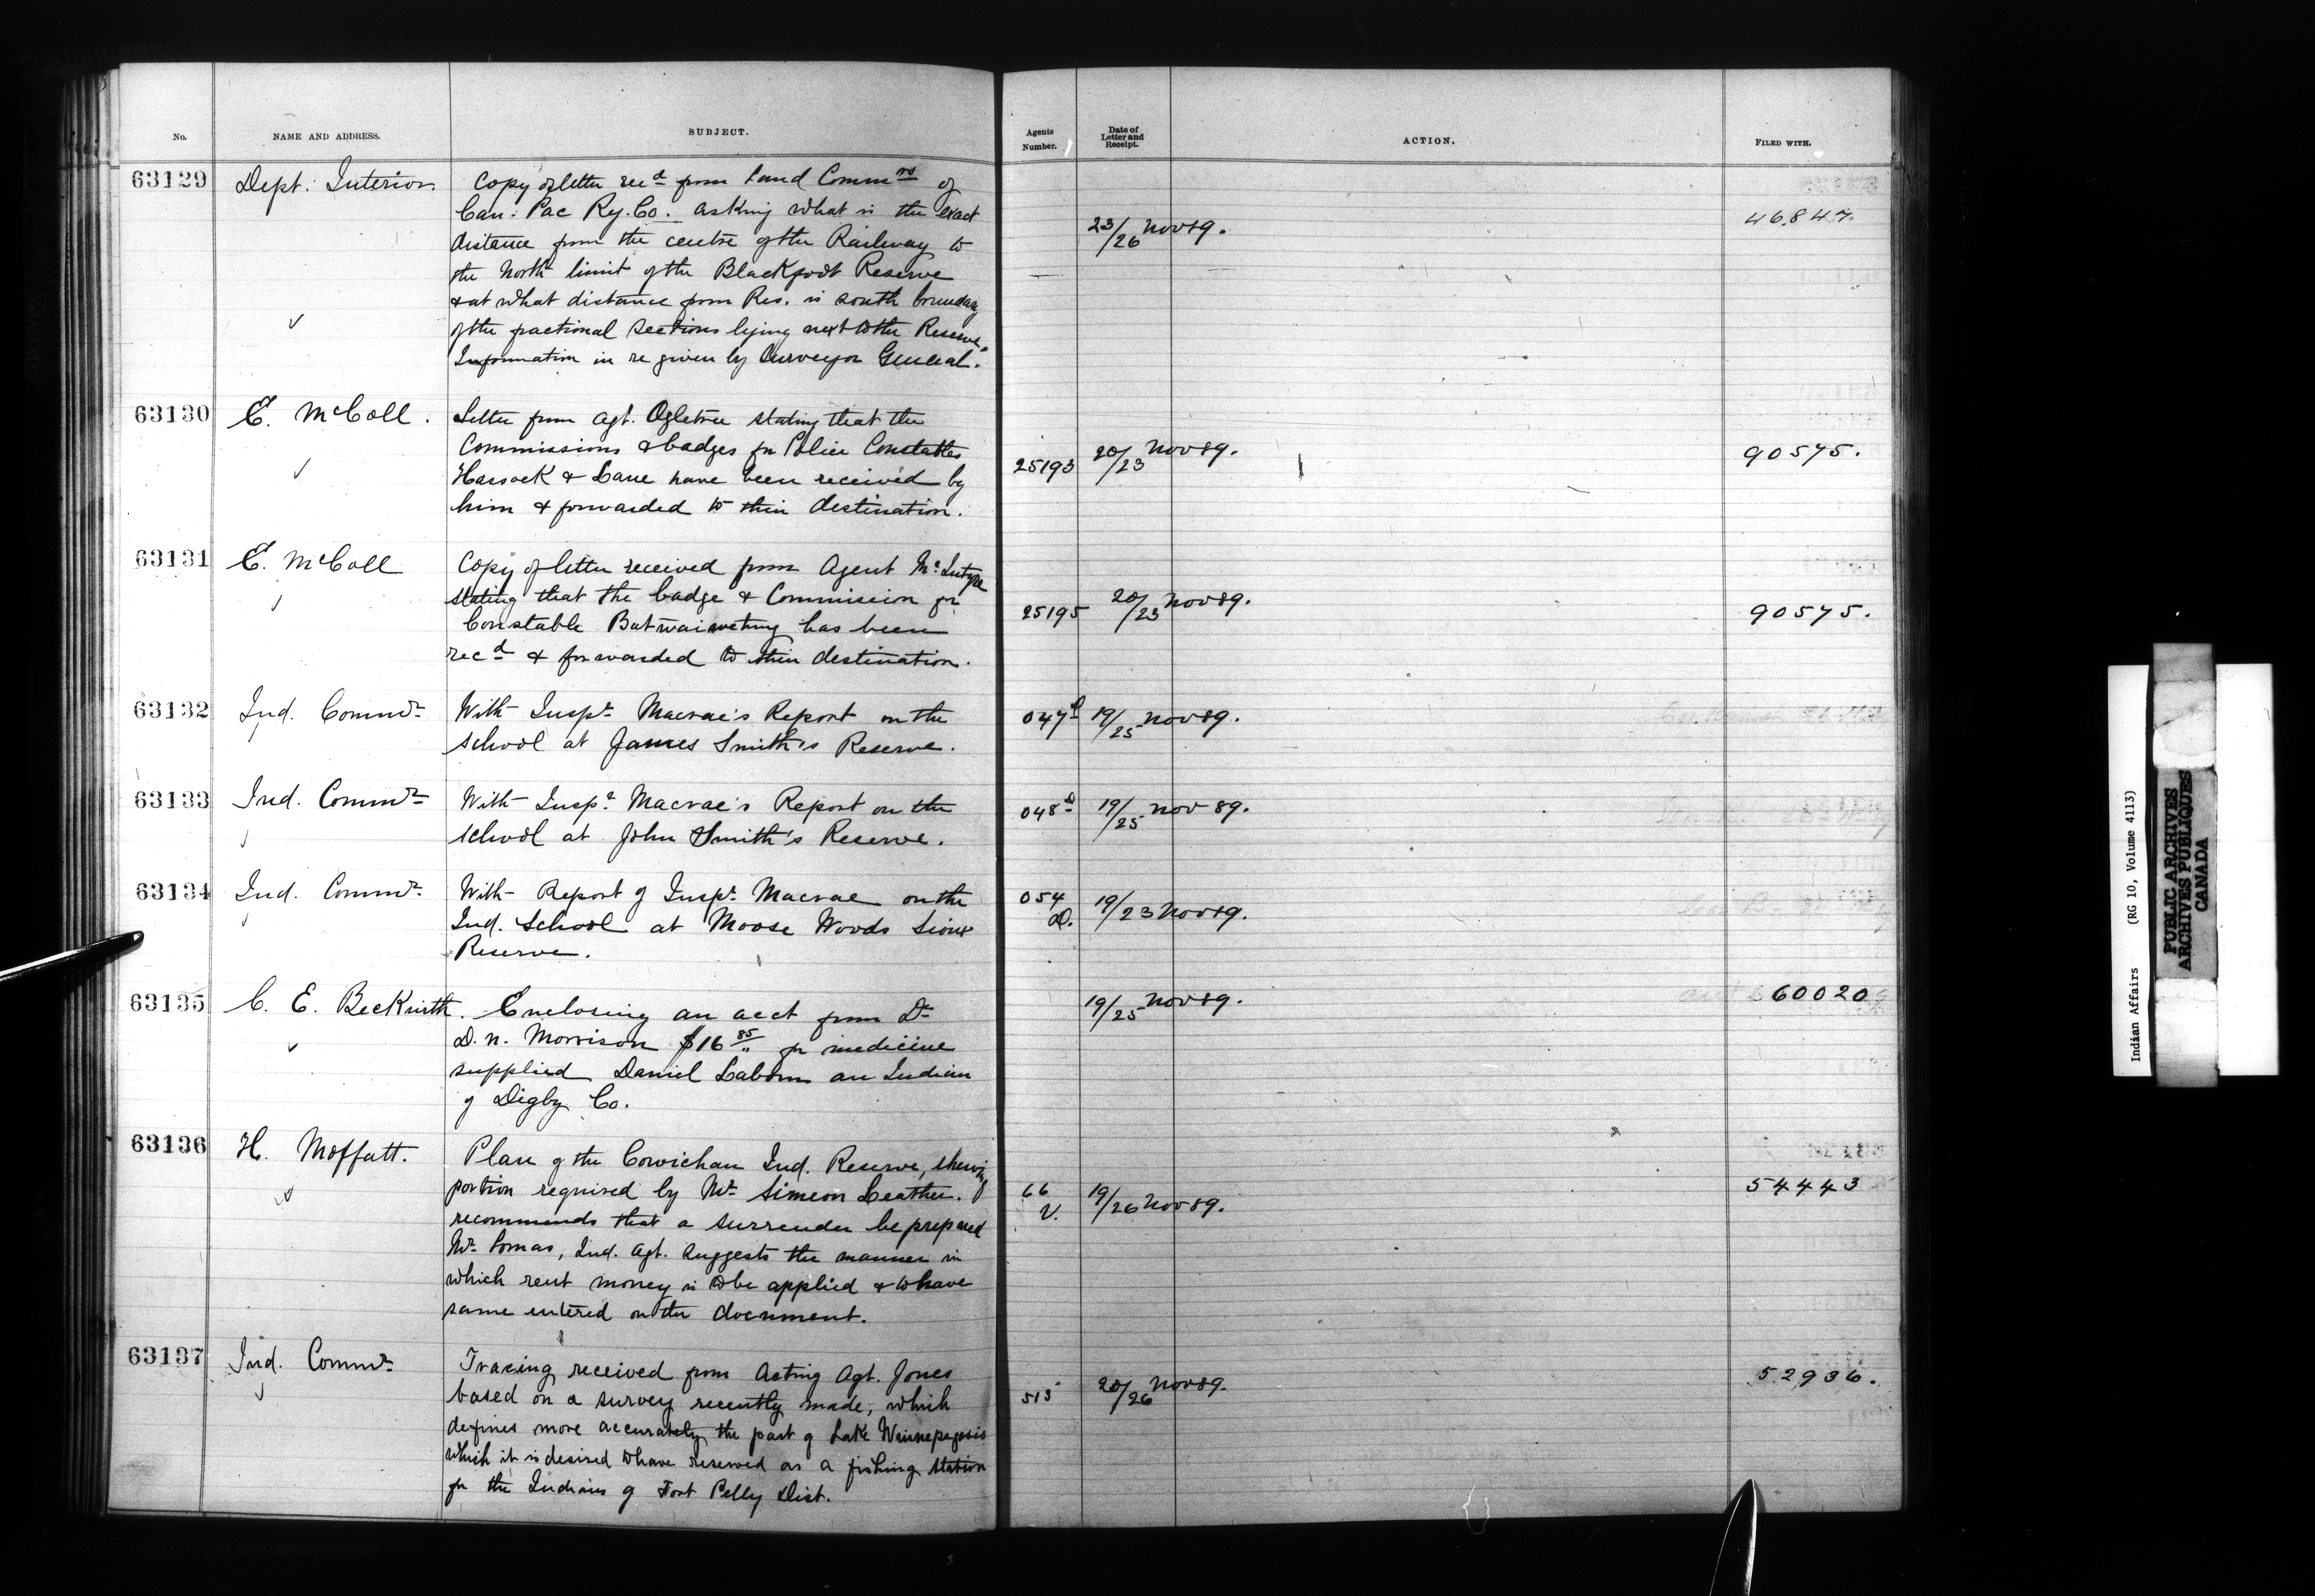 No. NAME AND ADDRESS. SUBJECT. Agents Number. Date of Letter and Receipt. ACTION. FILED WITH.
63129 Dept. Interior. Copy of letter recd from Land Commrs of
Can. Pac Ry. Co. asking what is the exact
distance from the centre of the Railway to
the North limit of the Blackfoot Reserve
& at what distance from Res. is south boundary
of the fractional sections lying next to the Reserve.
Information in re given by Surveyor General.
23/26 Nov 89. 46847.
63130 E. McColl. Letter from agt. Ogletree stating that the
Commissions & badges for Police Constables
Hassock & Lane have been received by
him & forwarded to their destination.
25193 20/23 Nov 89. 90575.
63131 E. McColl Copy of letter received from Agent McIntyre
stating that the badge & Commission for
Constable has been
recd & forwarded to their destination.
25195 20/23 Nov 89. 90575.
63132 Ind. Commr. With Inspr. Macrae's Report on the
school at James Smith's Reserve.
047D 19/25 Nov 89.
63133 Ind. Commr. With Inspr. Macrae's Report on the
school at John Smith's Reserve.
048D 19/25 Nov 89.
63134 Ind. Commr. With Report of Inspr. Macrae on the
Ind. School at Moose Woods Sioux
Reserve.
054 D. 19/23 Nov 89.
63135 C. E. Beckwith. Enclosing an acct from Dr
D. N. Morrison $16 85/" for medicine
supplied Daniel Labom an Indian
of Digby Co.
19/25 Nov 89. 60020
63136 H. Moffatt. Plan of the Cowichan Ind. Reserve, shewing
portion required by Mr. Simeon Leather.
recommends that a surrender be prepared
Mr. Lomas, Ind. Agt. suggests the manner in
which rent money is to be applied & to have
same entered on the document.
66 V. 19/26 Nov 89. 54443
63137 Ind. Commr. Tracing received from Acting Agt. Jones
based on a survey recently made, which
defines more accurately the part of Lake Winnepegosis
which it is desired to have reserved as a fishing station
for the Indians of Fort Pelly Dist.
515 20/26 Nov 89. 52936.
Indian Affairs (RG 10, Volume 4113)
PUBLIC ARCHIVES
ARCHIVES PUBLIQUES
CANADA